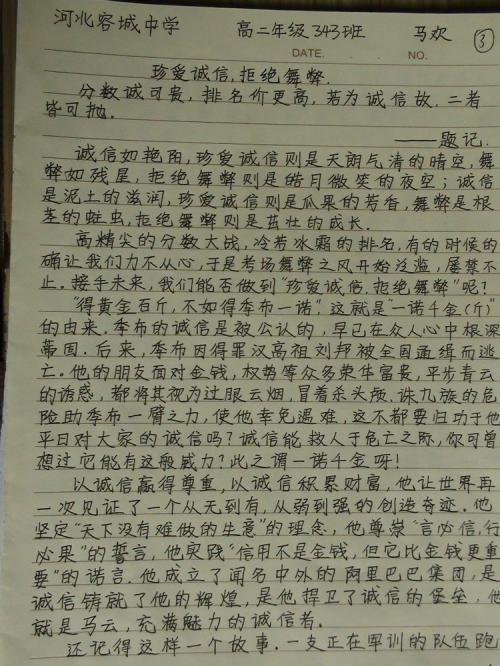 河北容城中学 高二年级343班 马欢 ③
DATE. NO.
珍爱诚信,拒绝舞弊.
分数诚可贵,排名价更高,若为诚信故.二者
皆可抛.
——题记.
诚信如艳阳,珍爱诚信则是天朗气清的晴空,舞
弊如残星,拒绝舞弊则是皓月微笑的夜空;诚信
是泥土的滋润,珍爱诚信则是瓜果的芳香,舞弊是根
茎的蛀虫,拒绝舞弊则是茁壮的成长.
高精尖的分数大战,冷若冰霜的排名,有的时候的
确让我们力不从心,于是考场舞弊之风开始泛滥,屡禁不
止.接手未来,我们能否做到“珍爱诚信,拒绝舞弊”呢?
“得黄金百斤,不如得季布一诺”.这就是“一诺千金(斤)”
的由来.季布的诚信是被公认的,早已在众人心中根深
蒂固.后来,季布因得罪汉高祖刘邦被全国通缉而逃
亡.他的朋友面对金钱,权势等众多荣华富贵,平步青云
的诱惑,都将其视为过眼云烟,冒着杀头颅,诛九族的危
险助季布一臂之力,使他幸免遇难,这不都要归功于他
平日对大家的诚信吗?诚信能救人于危亡之际,你可曾
想过它能有这般威力?此之谓一诺千金呀!
以诚信赢得尊重,以诚信积累财富,他让世界再
一次见证了一个从无到有,从弱到强的创造奇迹.他
坚定“天下没有难做的生意”的理念,他尊崇“言必信,行
必果”的誓言,他实践“信用不是金钱,但它比金钱更重
要”的诺言.他成立了闻名中外的阿里巴巴集团,是
诚信铸就了他的辉煌,是他捍卫了诚信的堡垒,他
就是马云,充满魅力的诚信者.
还记得这样一个故事.一支正在军训的队伍跑